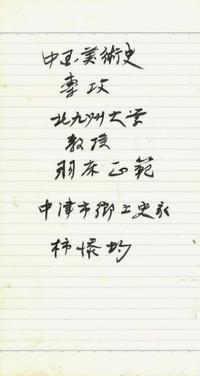 中国美術史
專攻
北九州大学
教授
羽床正範
中津市郷土史家